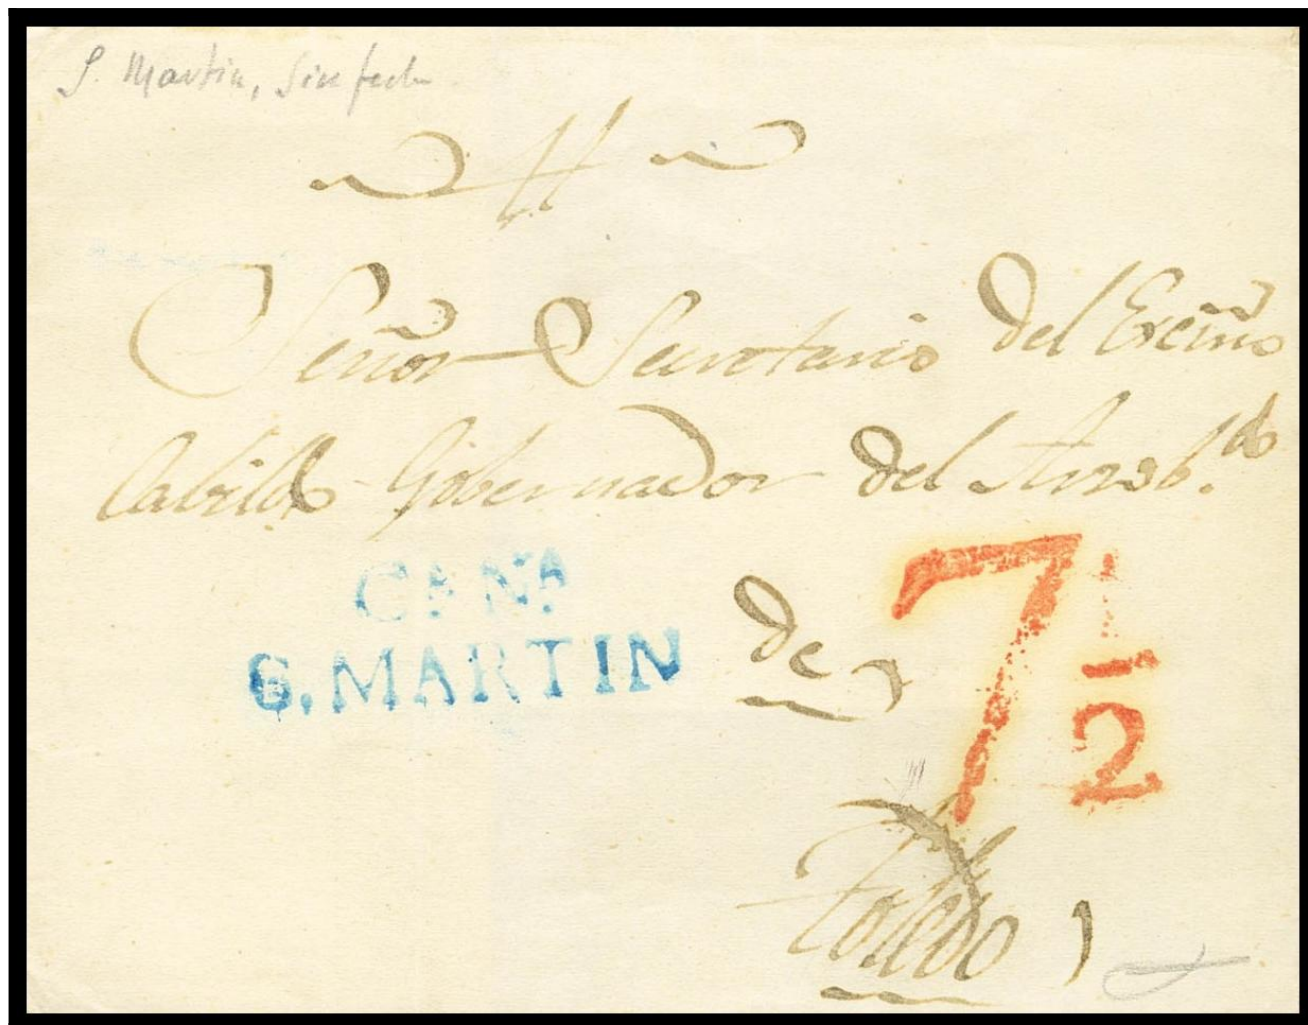 S. Martin, sin fecha
Señor Secretario del Excmo
Cabildo Gobernador del Arzob.do
CANA
S.MARTIN
de
7 1/2
Toledo